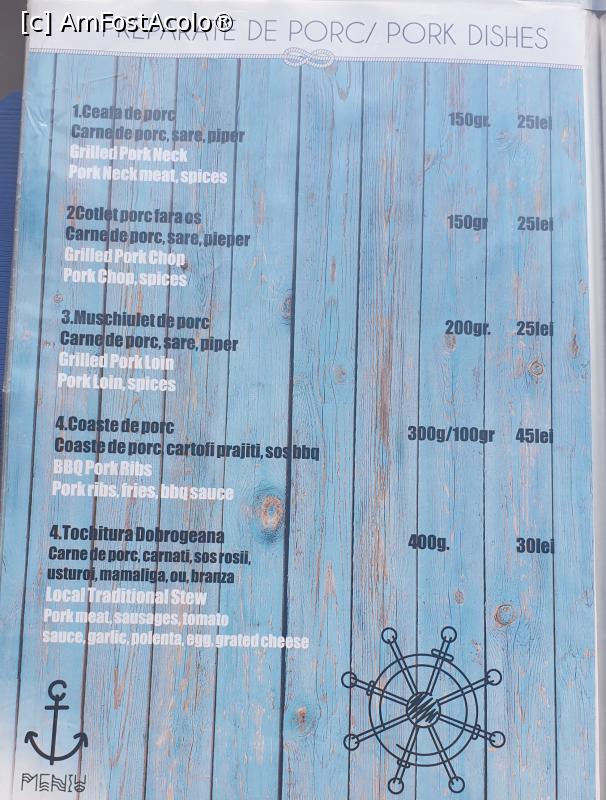 [c] AmFostAcolo®
PREPARATE DE PORC/ PORK DISHES
1.Ceafa de porc 150gr. 25lei
Carne de porc, sare, piper
Grilled Pork Neck
Pork Neck meat, spices
2Cotlet porc fara os 150gr 25lei
Carne de porc, sare, pieper
Grilled Pork Chop
Pork Chop, spices
3.Muschiulet de porc 200gr. 25lei
Carne de porc, sare, piper
Grilled Pork Loin
Pork Loin, spices
4.Coaste de porc 300g/100gr 45lei
Coaste de porc, cartofi prajiti, sos bbq
BBQ Pork Ribs
Pork ribs, fries, bbq sauce
4.Tochitura Dobrogeana 400g. 30lei
Carne de porc, carnati, sos rosii,
usturoi, mamaliga, ou, branza
Local Traditional Stew
Pork meat, sausages, tomato
sauce, garlic, polenta, egg, grated cheese
MENIU